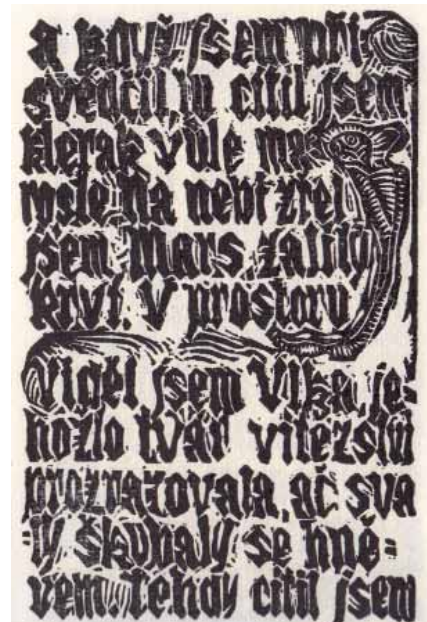 a když jsem při
svědčil, tu cítil jsem
kterak vůle má
roste. Na nebi zřel
jsem Mars, zalitý
krví. V prostoru
Viděl jsem Vlka, je=
hožto tvář vítězství
prozrazovala, ač sva
=ly škubaly se hně=
vem. Tehdy cítil jsem